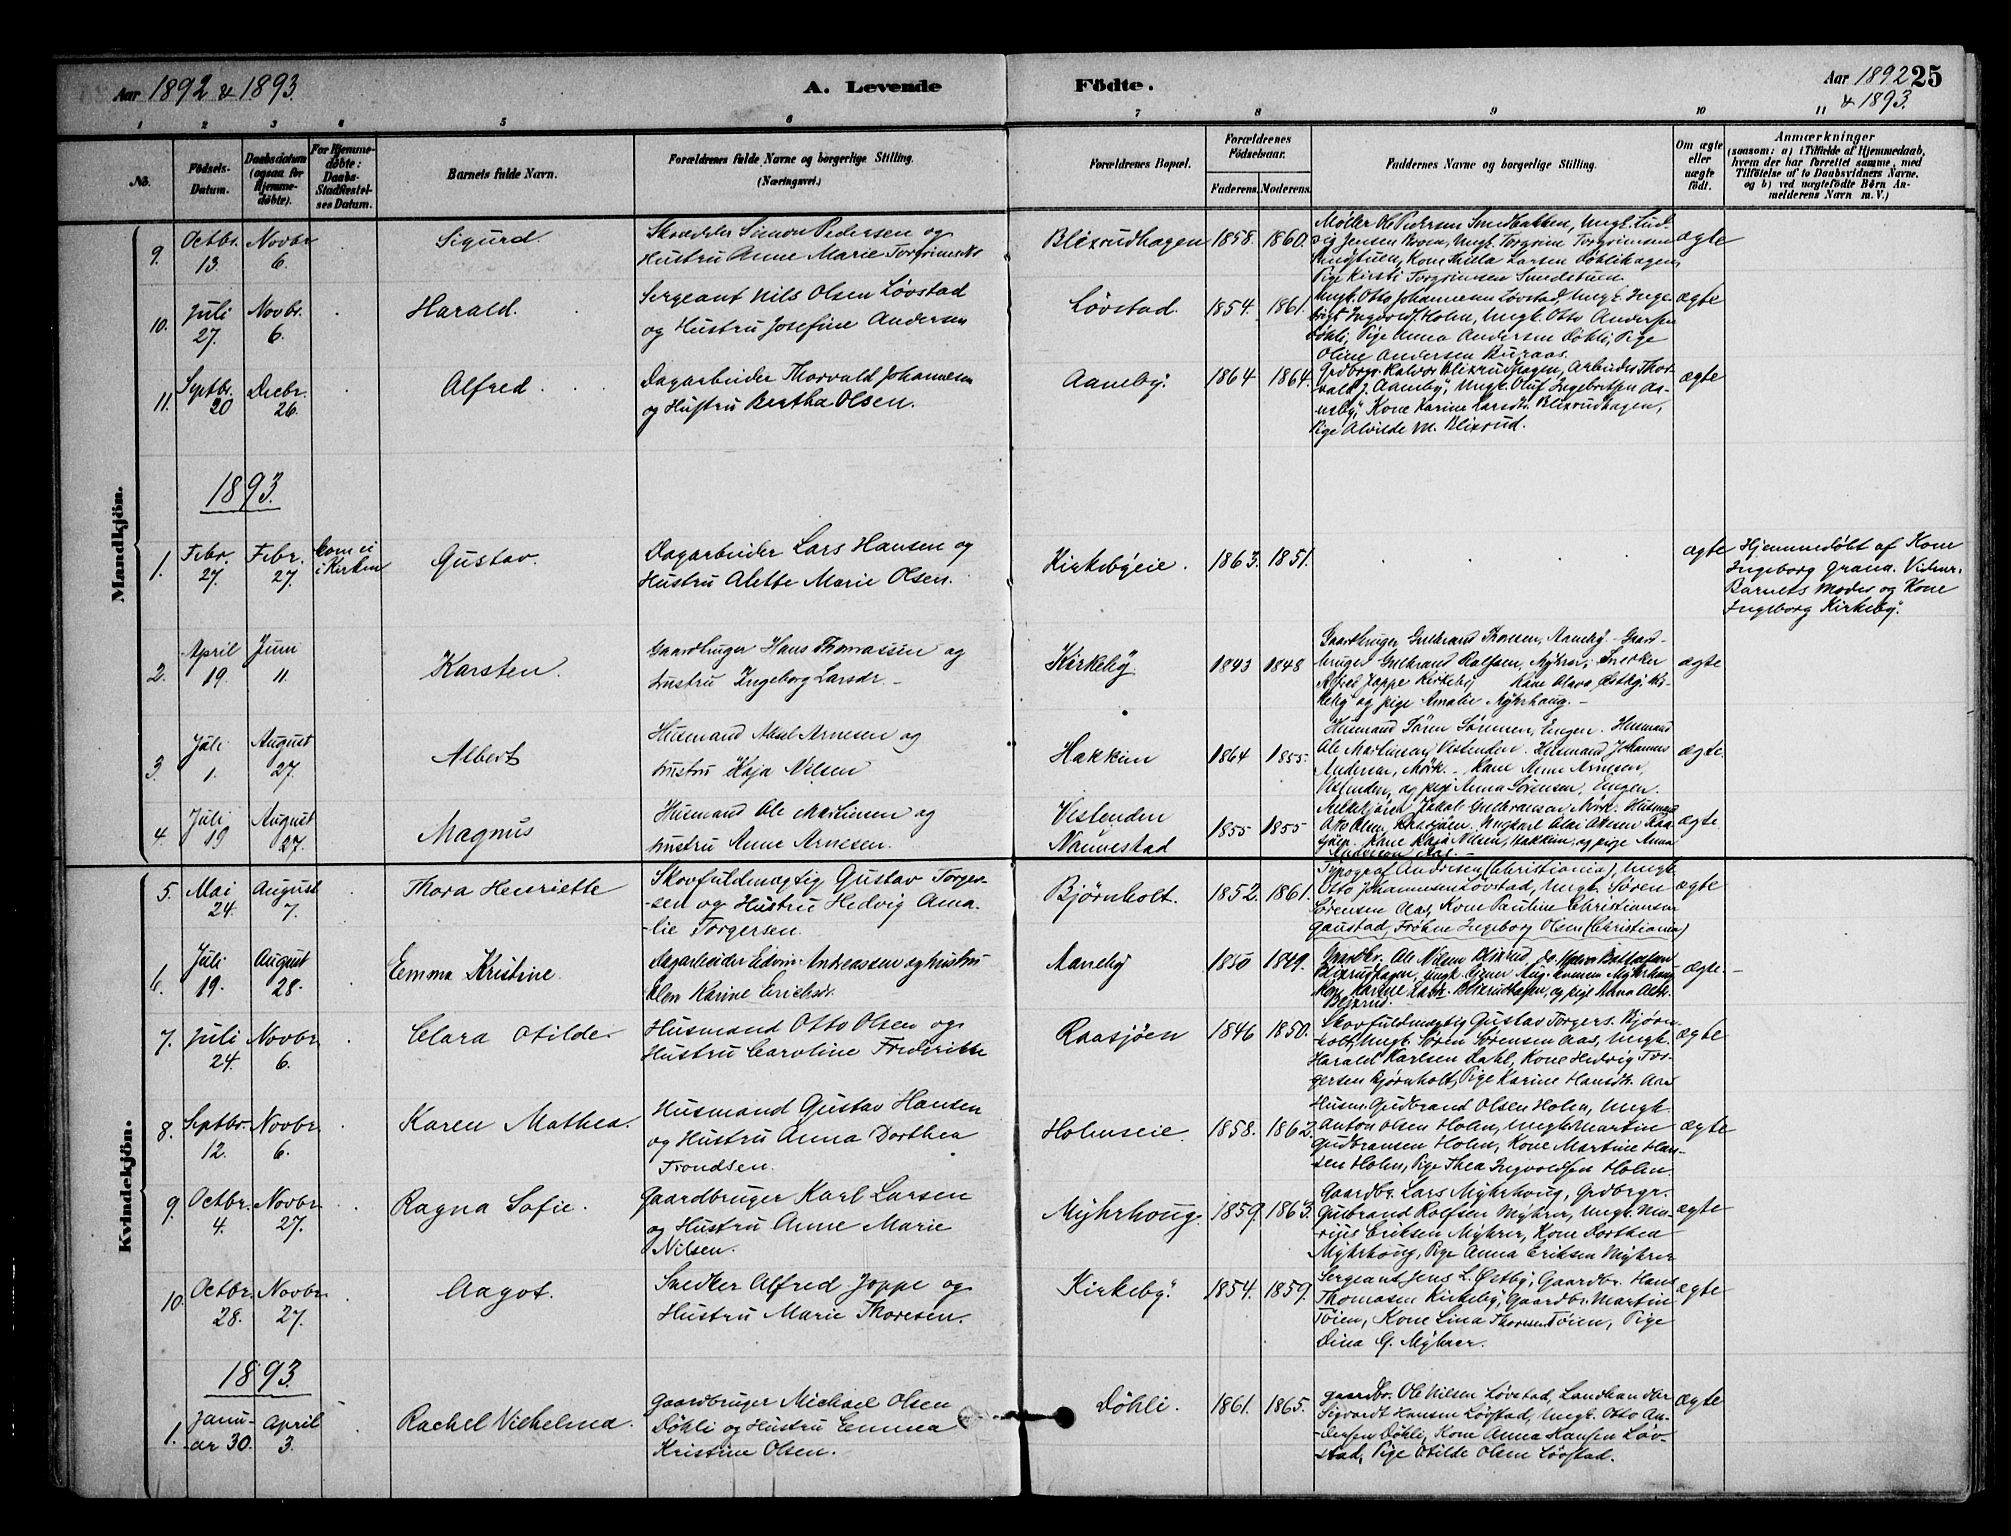 Aar 1892 & 1893.
A. Levende Födte.
Aar 1892 25
& 1893.
1 2 3 4 5 6 7 8 9 10 11
No.
Födsels-
Datum.
Daabsdatum
(ogsaa for
Hjemme-
døbte).
For Hjemme-
døbte:
Daabs-
Stadfæstel-
ses Datum.
Barnets fulde Navn.
Forældrenes fulde Navne og borgerlige Stilling.
(Næringsvei.)
Forældrenes Bopæl.
Forældrenes
Födselsaar.
Faderens. Moderens.
Faddernes Navne og borgerlige Stilling.
Om ægte
eller
uægte
födt.
Anmærkninger
(saasom: a) i Tilfælde af Hjemmedaab,
hvem der har forrettet samme, med
Tilföielse af to Daabsvidners Navne.
og b) ved uægtefödte Börn An-
melderens Navn m. V.)
Mandkjön.
9. Octbr. 13. Novbr 6. Sigurd.
Skrædder Simon Pedersen og
Hustru Anne Marie Torgrimsens
Blixrudhagen 1858. 1860.
Møller Ole Pedersen Sundbakken, Ungk. Lud-
vig Jensen Moen, Ungk. Torgrim Torgrimsen
Sundstuen, Kone Larsen Døhlihagen,
Pige Kirsti Torgrimsen Sundstuen.
ægte
10. Juli 27. Novbr. 6. Harald.
Sergeant Nils Olsen Løvstad
og Hustru Josefine Andersen
Løvstad. 1854. 1861.
Ungk. Otto Johannesen Løvstad, Ungk. Inge-
brigt Ingvoldsf. Holm, Ungk. Otto Andersen
Døhli, Pige Anna Andersen Døhli, Pige
Oline Andersen Buraas.
ægte
11. Septbr. 20 Decbr. 26. Alfred.
Dagarbeider Thorvald Johannesen
og Hustru Bertha Olsen.
Aaneby. 1864 1864.
Grdbrgr. Halvor Blixrudhagen, Arbeider Thor-
vald J. Aaneby, Ungk. Oluf Ingebritsen Aa-
neby, Kone Karine Larsdtr. Blixrudhagen,
Pige Alvilde M. Blixrud.
ægte
1893.
1. Febr. 27. Febr. 27. kom ei
i Kirken
Gustav.
Dagarbeider Lars Hansen og
Hustru Alette Marie Olsen.
Kirkebyeie. 1863. 1851.
ægte
Hjemmedøbt af Kone
Ingeborg Grana. Vidner:
Barnets Moder og Kone
Ingeborg Kirkeby.
2. April 19. Juni 11. Karsten.
Gaardbruger Hans Thomasen og
hustru Ingeborg Larsdr. –
Kirkeby. 1843 1848
Gaardbruger Gulbrand Thoresen, Aaneby. – Gaard-
bruger Gulbrand Rolfsen, Myhrer; Snedker
Alfred Joppe Kirkeby Kone Olava Østby, Kir-
keby og pige Amalie Myhrhaug. –
ægte
3. Juli 1. August 27. Albert
Husmand Axel Arnesen og
hustru Kaja Nilsen
Hakkim 1864 1855.
Husmand Sören Sörensen, Engen. Husmand
Ole Martinsen, Vestenden. Husmand Johannes
Andersen, Mörk. – Kone Anne Arnesen,
Vestenden, og pige Anna Sørensen, Engen.
ægte.
4. Juli 19 August 27. Magnus
Husmand Ole Martinsen og
hustru Anne Arnesen.
Vestenden
1855 1855
Jakob Gulbransen Mörk. Husmand
Otto Olsen, Raasjöen. Ungkarl Olsen Raa-
sjöen. Kone Kaja Nilsen, Hakkim, og pige Anna
Andersen
ægte.
Kvindekjön.
5. Mai 24. August 7. Thora Henriette
Skovfuldmægtig Gustav Torger-
sen og Hustru Hedvig Ama-
lie Torgersen.
Bjørnholt. 1852. 1861.
Typograf Andresen (Christiania), Ungk.
Otto Johannesen Løvstad, Ungk. Søren
Sørensen Aas, Kone Pauline Christiansen
Gaustad, Frøken Ingeborg Olsen (Christiania)
ægte
6. Juli 19. August 28. Emma Kristine.
Dagarbeider Edvin Andreassen og hustru
Elen Karine Erichsdr.
Aaneby 1850 1849.
Gaardbr. Ole Nilsen Blixrud,
Blixrudhagen, ungk. Myhrhaug
Kone Karine Larsdr. Blixrudhagen, og pige Anna
Blixrud.
ægte. –
7. Juli 24. Novbr. 6. Clara Otilde.
Husmand Otto Olsen og
Hustru Caroline Frederikke
Raasjöen 1846 1850.
Skovfuldmægtig Gustav Torgers. Bjørn-
holt, Ungk. Søren Sørensen Aas, Ungk.
Harald Karlsen Dahl, Kone Hedvig Tor-
gersen Bjørnholt, Pige Karine Hansdtr. Aas
ægte
8. Septbr. 12. Novbr. 6. Karen Mathea.
Husmand Gustav Hansen
og Hustru Anna Dorthea
Trondsen.
Holmseie. 1858. 1862.
Husm. Gudbrand Olsen Holm, Ungk.
Anton Olsen Holm, Ungk. Martin
Gudbransen Holm, Kone Martine Han-
sen Holm, Pige Thea Ingvoldsen Holm.
ægte
9. Octbr. 4. Novbr. 27. Ragna Sofie.
Gaardbruger Karl Larsen
og Hustru Anne Marie
Nilsen.
Myhrhoug. 1859. 1863.
Gaardbr. Lars Myhrhoug, Grdbrgr.
Gulbrand Rolfsen Myhrer, Ungk. Ma-
rijus Eriksen Myhrer, Kone Dorthea
Myhrhoug, Pige Anna Eriksen Myhrer
ægte
10. Octbr. 28. Novbr. 27. Aagot.
Snedker Alfred Joppe og
Hustru Marie Thoresen.
Kirkeby. 1854. 1859.
Sergeant Jens L. Østby, Gaardbr. Hans
Thomasen Kirkeby, Gaardbr. Martin
Tøien, Kone Lina Thoresen Tøien, Pige
Dina G. Myhrer.
ægte
1893.
1. Janu-
ar 30. April 3. Rachel Vilhelmina.
Gaardbruger Michael Olsen
Døhli og Hustru Emma
Kristine Olsen.
Døhli. 1861. 1865.
Gaardbr. Ole Nilsen Løvstad, Landhandler
Sigvardt Hansen Løvstad, Ungk. Otto An-
dersen Døhli, Kone Anna Hansen Løv-
stad, Pige Otilde Olsen Løvstad.
ægte